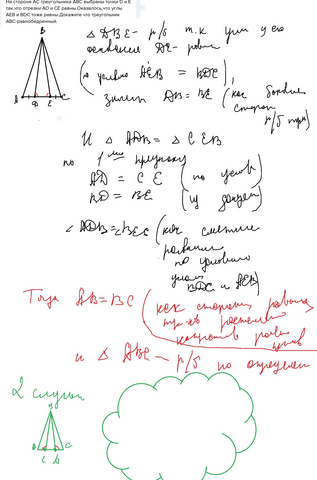 На стороне AC треугольника ABC выбраны точки D и E
так,что отрезки AD и CE равны.Оказалось,что углы
AEB и BDC тоже равны.Докажите что треугольник
ABC-равнобедренный.
B
A D E C
Δ DBE - р/б т.к. углы у его
основания DE - равны
(по условию AEB = BDC)
значит DB = BE (как боковые
стороны
р/б тр)
И Δ ADB = Δ CEB
по 1 признаку
AD = CE (по услов)
BD = BE (из
(как смежные
равными
по условию
углами
BDC и AEB)
Тогда AB = BC (как стороны равных
напротив равн
углов
и Δ ABC - р/б по определен
2 случай
B
A E D C